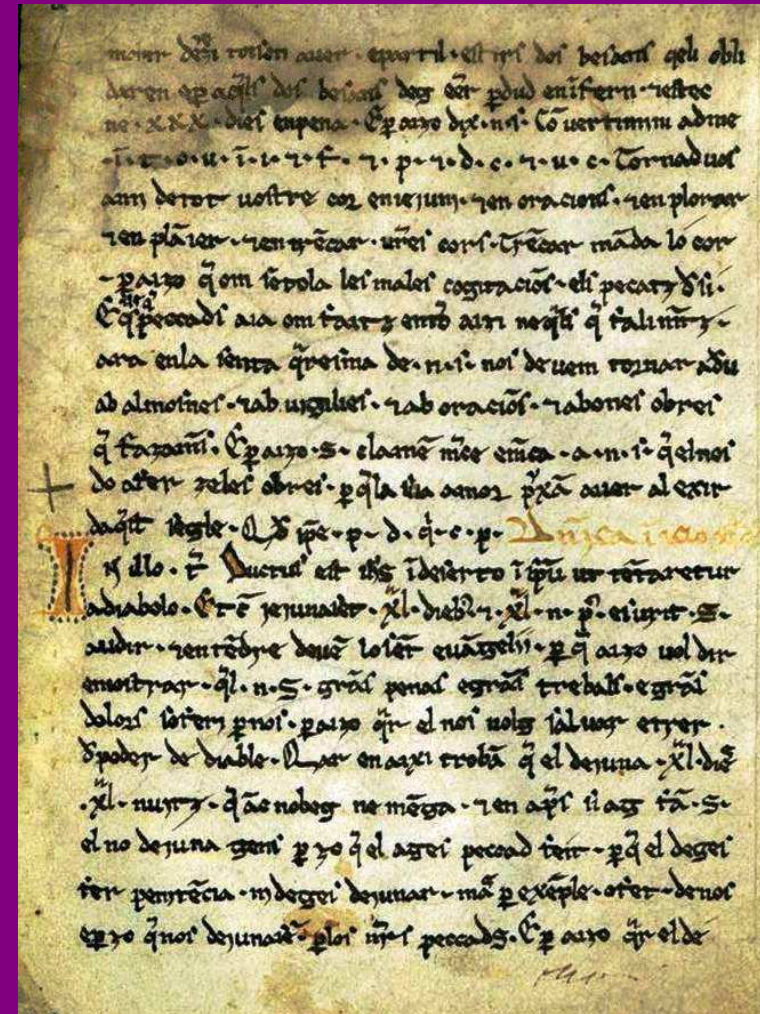 morir deuri totſen auer · epartil · eſt irſ doſ beſanſ qeli obli
daren ep aq̄lſ doſ beſanſ deg eēr p̄dud en īfern · ⁊eſtec
ne · XXX · dieſ enpena · Ep aizo dix · n · ſ · Cōuertimini adme
· ī · t · o · u · ī · i · ⁊ · f · ⁊ · p · ⁊ · d · c · ⁊ · u · c · Tornaduoſ
ami detot uoſtre cor enieiuni · ⁊en oracionſ · ⁊en plorar
⁊en plāier · ⁊entrēcar · ur̄eſ corſ · Trēcar māda lo cor
· p aizo q̄ om ſetola leſ maleſ cogitacioſ · elſ pecatz d ſi ·
ara enla ſenta q̄reſma de · n · ſ · noſ deuem tornar adu
ab almoſneſ · ⁊ab uigilieſ · ⁊ab oracioſ · ⁊aboneſ obreſ
q̄ fazamſ · Ep aizo · S · clamē m̄ce · a · n · ſ · q̄elnoſ
do afer zeleſ obreſ · p q̄la ſua amor p̄xā auer al exir
daq̄ſt ſegle · Qd ip̄e · p · d · q̄ · c · p ·
IN illo · t̄ Ductuſ eſt ih̄ſ īdeſerto īſpū ut tētaretur
adiabolo · Et c̄ ieiunaſet · X̄l · dieb; ⁊ · X̄l · n · p̄ · eſurit · S ·
audir · ⁊entēdre deuē loſēt euāgeli · p q̄ aizo uol dir
emoſtrar · q̄l · n · S · grāſ penaſ egrāſ trebalſ · e grāſ
dolorſ ſoferi p noſ · p aizo q̄r el noſ uolg ſaluar etrer ·
d poder de diable · Quar en aizi trobā q̄ el deiuna · X̄l · dieſ
· X̄l · nuitz · q̄ āc nobeg ne mēga · ⁊en ap̄ſ ſi ag fā · S ·
el no deiuna genſ p zo q̄ el ageſ peccad feit · p q̄ el degeſ
fer penitēcia · ni degeſ deiunar · maſ p exēple · ofer · denoſ
ep zo q̄ noſ deiunaſē p loſ nr̄eſ peccadſ · Ep aizo q̄r el de